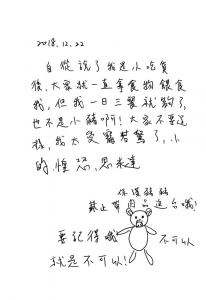 2018.12.22
自從說了我是小吃貨
後，大家就一直拿食物餵食
我，但我一日三餐就夠了，
也不是小豬啊！大家不要這
樣，我太受寵若驚了，小
的惶恐，思來達
保護豬豬
禁止帶肉品進台哦！
要記得哦
不可以
就是不可以！